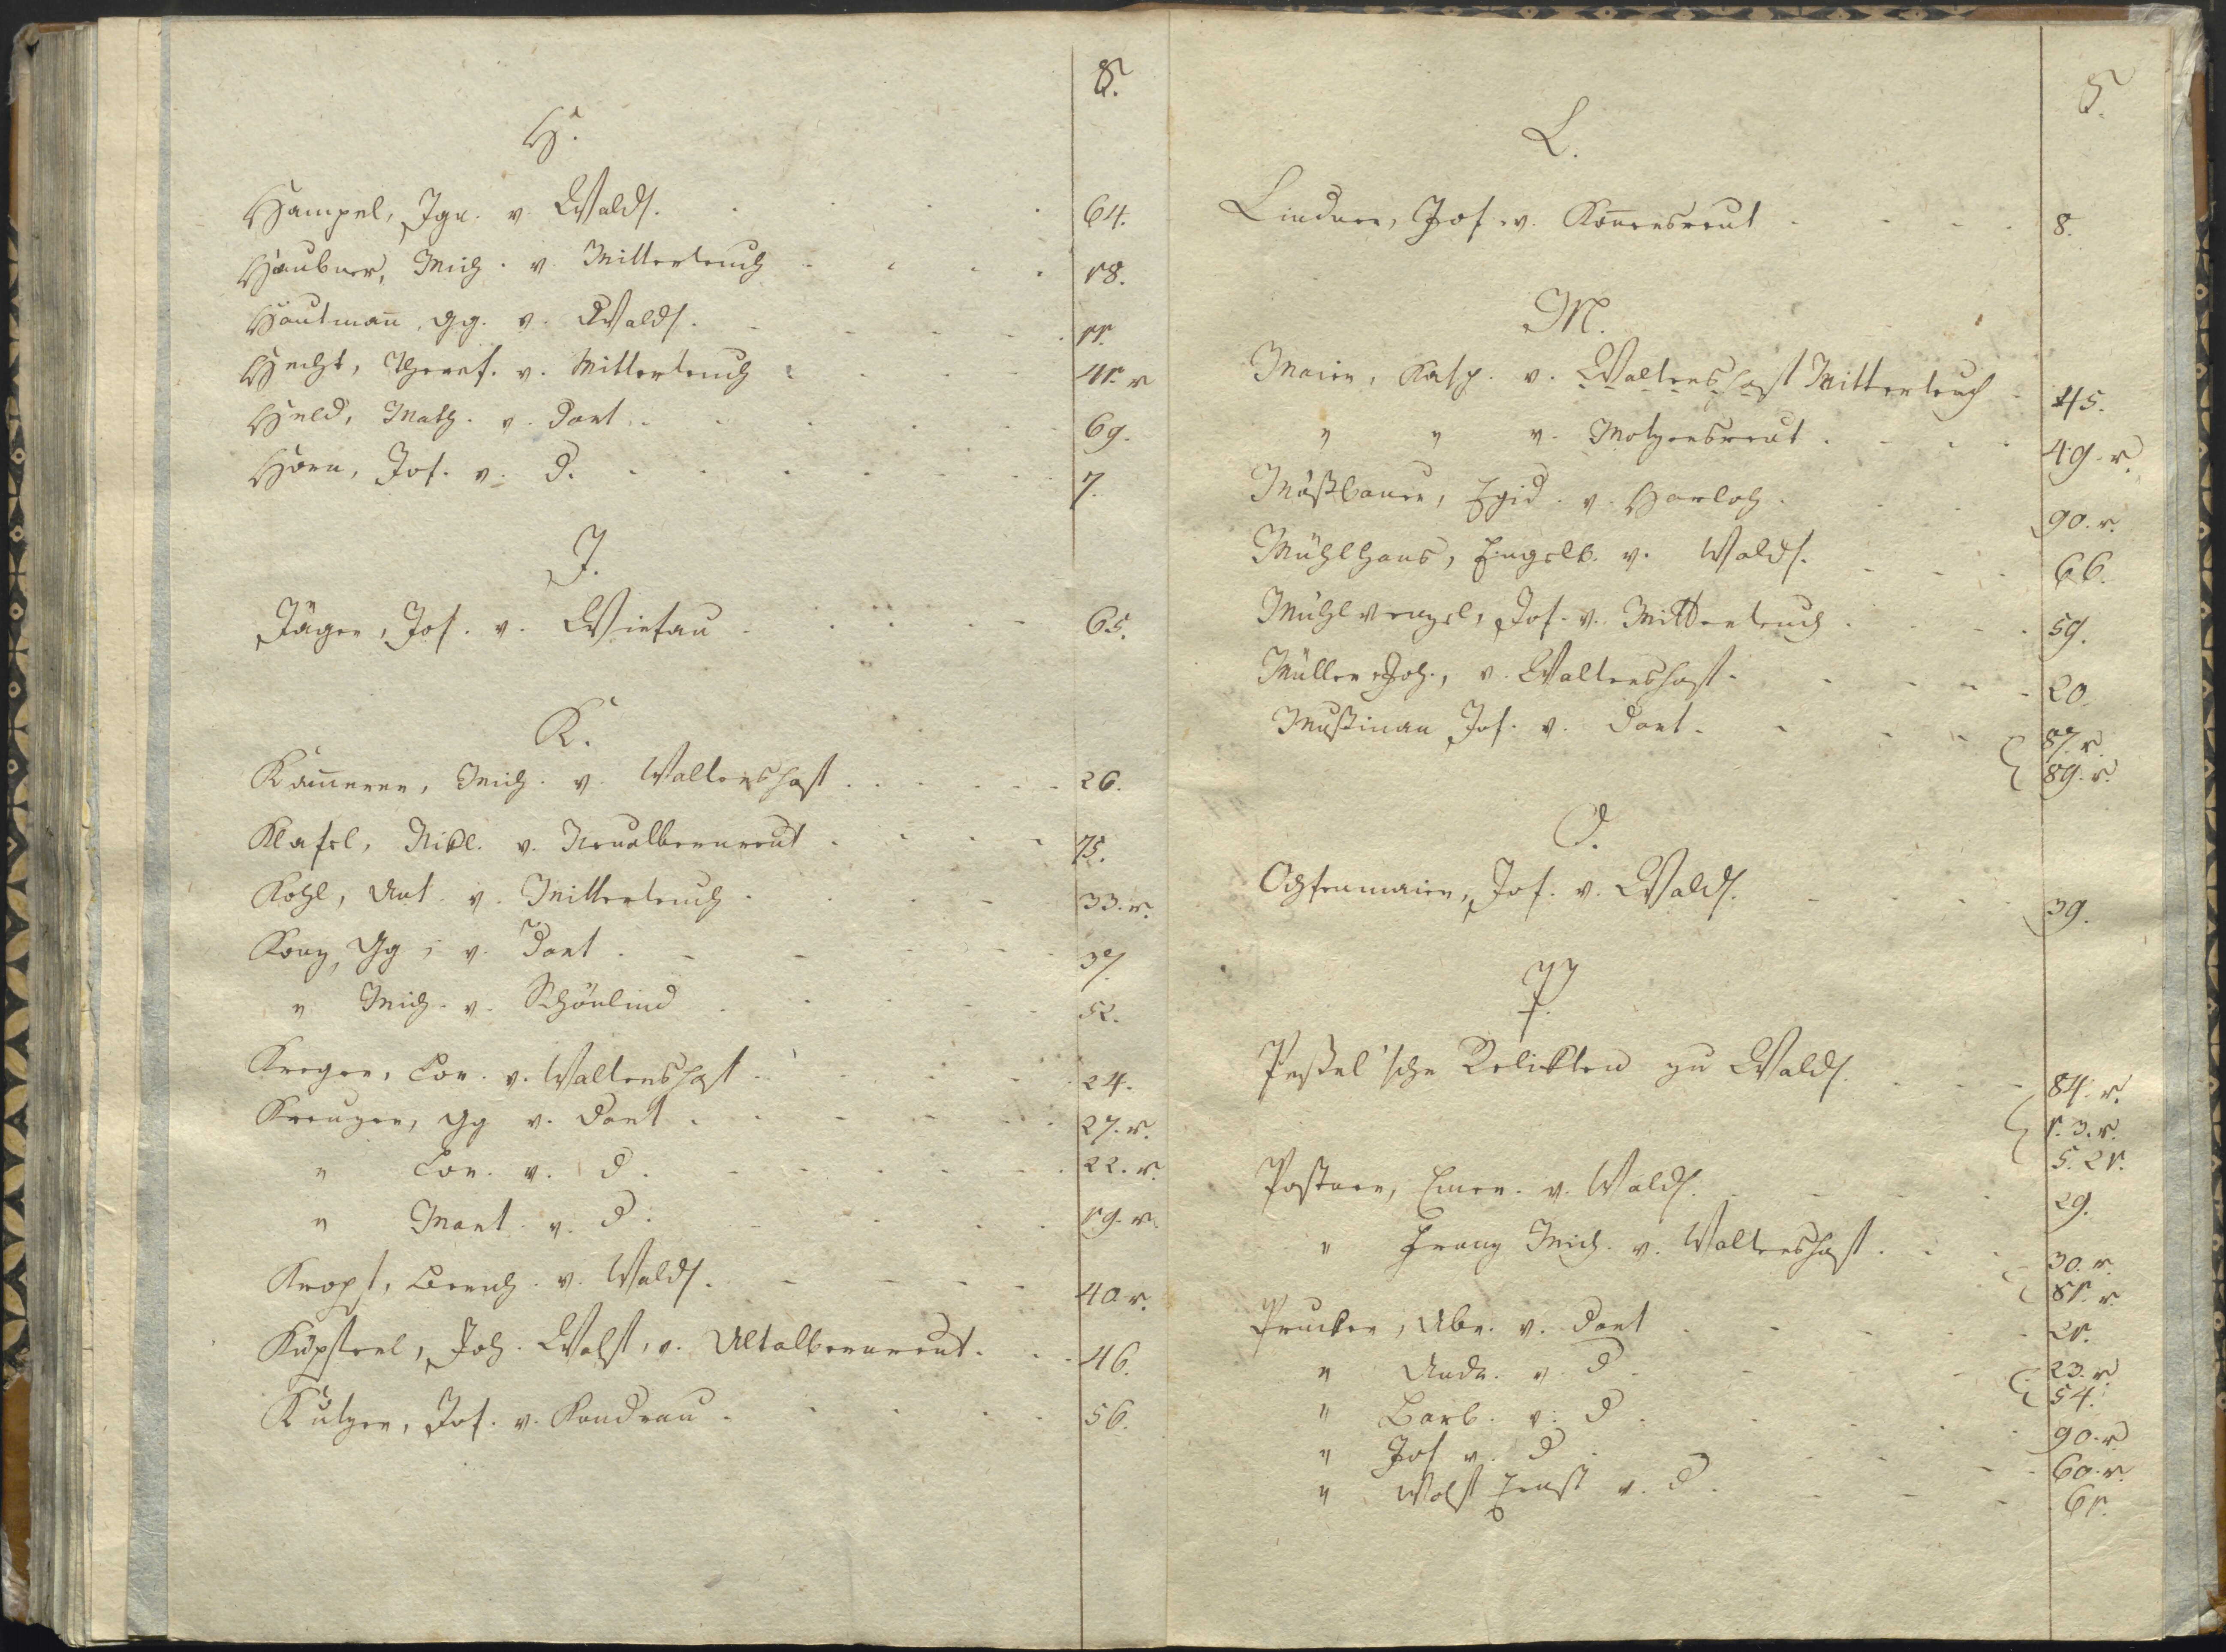 S.
H.
Hampel, Ign. v. Walds. 64.
Haubner, Mich. v. Mitterteuch 18.
Hautman̄, Gg. v. Walds. 11.
Hecht, Theres. v. Mitterteuch 41. v
Held, Math. v. dort 69.
Horn, Jos. v. d. 7.
J.
Jäger, Jos. v. Wiesau 65.
K.
Kam̄erer, Mich. v. Waltershof 26.
Klasel, Nikl. v. Neualbenreut 75.
Kohl, Ant. v. Mitterteuch 33. v.
Konz, Gg, v. Dort 37.
" Mich. v. Schönlind 52.
Kreger, Lor. v. Waltershof 24.
Kreuzer, Gg v. dort 27. v.
" Lor. v. d. 22. v.
" Mart. v. d. 19. v.
Kropf, Bernh. v. Walds. 40 v.
Küpferl, Joh. Wolf, v. Altalbenreut 46.
Kutzer, Jos. v. Kondrau 56.
S.
L.
Lindner, Jos. v. Kon̄ersreut 8.
M.
Maier, Kasp. v. Waltershof Mitterteuch 45.
" " v. Motzersreut 49. v.
Mößbauer, Egid. v. Harloh 90. v.
Mühlhans, Engelb. v. Walds. 66.
Mühlvenzel, Jos. v. Mitterteuch 59.
Müller Joh., v. Waltershof 20.
Mußinan Jos. v. dort 87. v.
89. v.
O.
Ochsenmaier, Jos. v. Walds. 39.
P.
Peßel'sche Relikten zu Walds. 84. v.
1. 3. v.
5. 21.
Pastner, Emer. v. Walds. 29.
" Franz Mich. v. Waltershof 30. v.
81. v.
Prucker, Abr. v. dort 21.
" Andr. v. d. 23. v
54.
" Barb. v. d. 90. v
" Jos v. d. 60. v.
" Wolf Ernst v. d. 61.